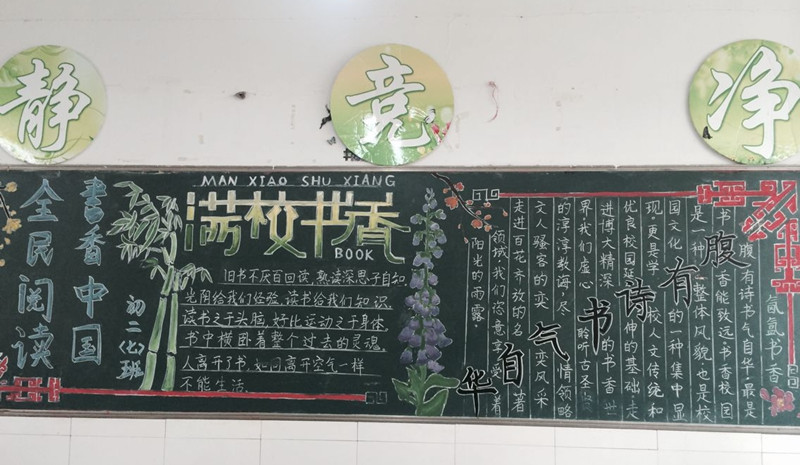 静
竞
净
書香中国
全民阅读
初二(七)班
MAN XIAO SHU XIANG
满校书香
BOOK
旧书不厌百回读,熟读深思子自知。
光阴给我们经验,读书给我们知识。
读书之于头脑,好比运动之于身体。
书中横着整个过去的灵魂。
人离开了书,如同离开空气一样
不能生活。
氤氲书香
腹有诗书气自华
腹有诗书气自华"最是
书香能致远。书香校园
是一种整体风貌也是校
国文化的一种集中显
现,更是学校人文传统和
优良校园延伸的基础走
进博大精深的书香世
界,我们虚心聆听古圣
的谆谆教诲,尽情领略
文人骚客的奕变风采
走进百花齐放的名著
领域,我们恣意享受着
阳光的雨露